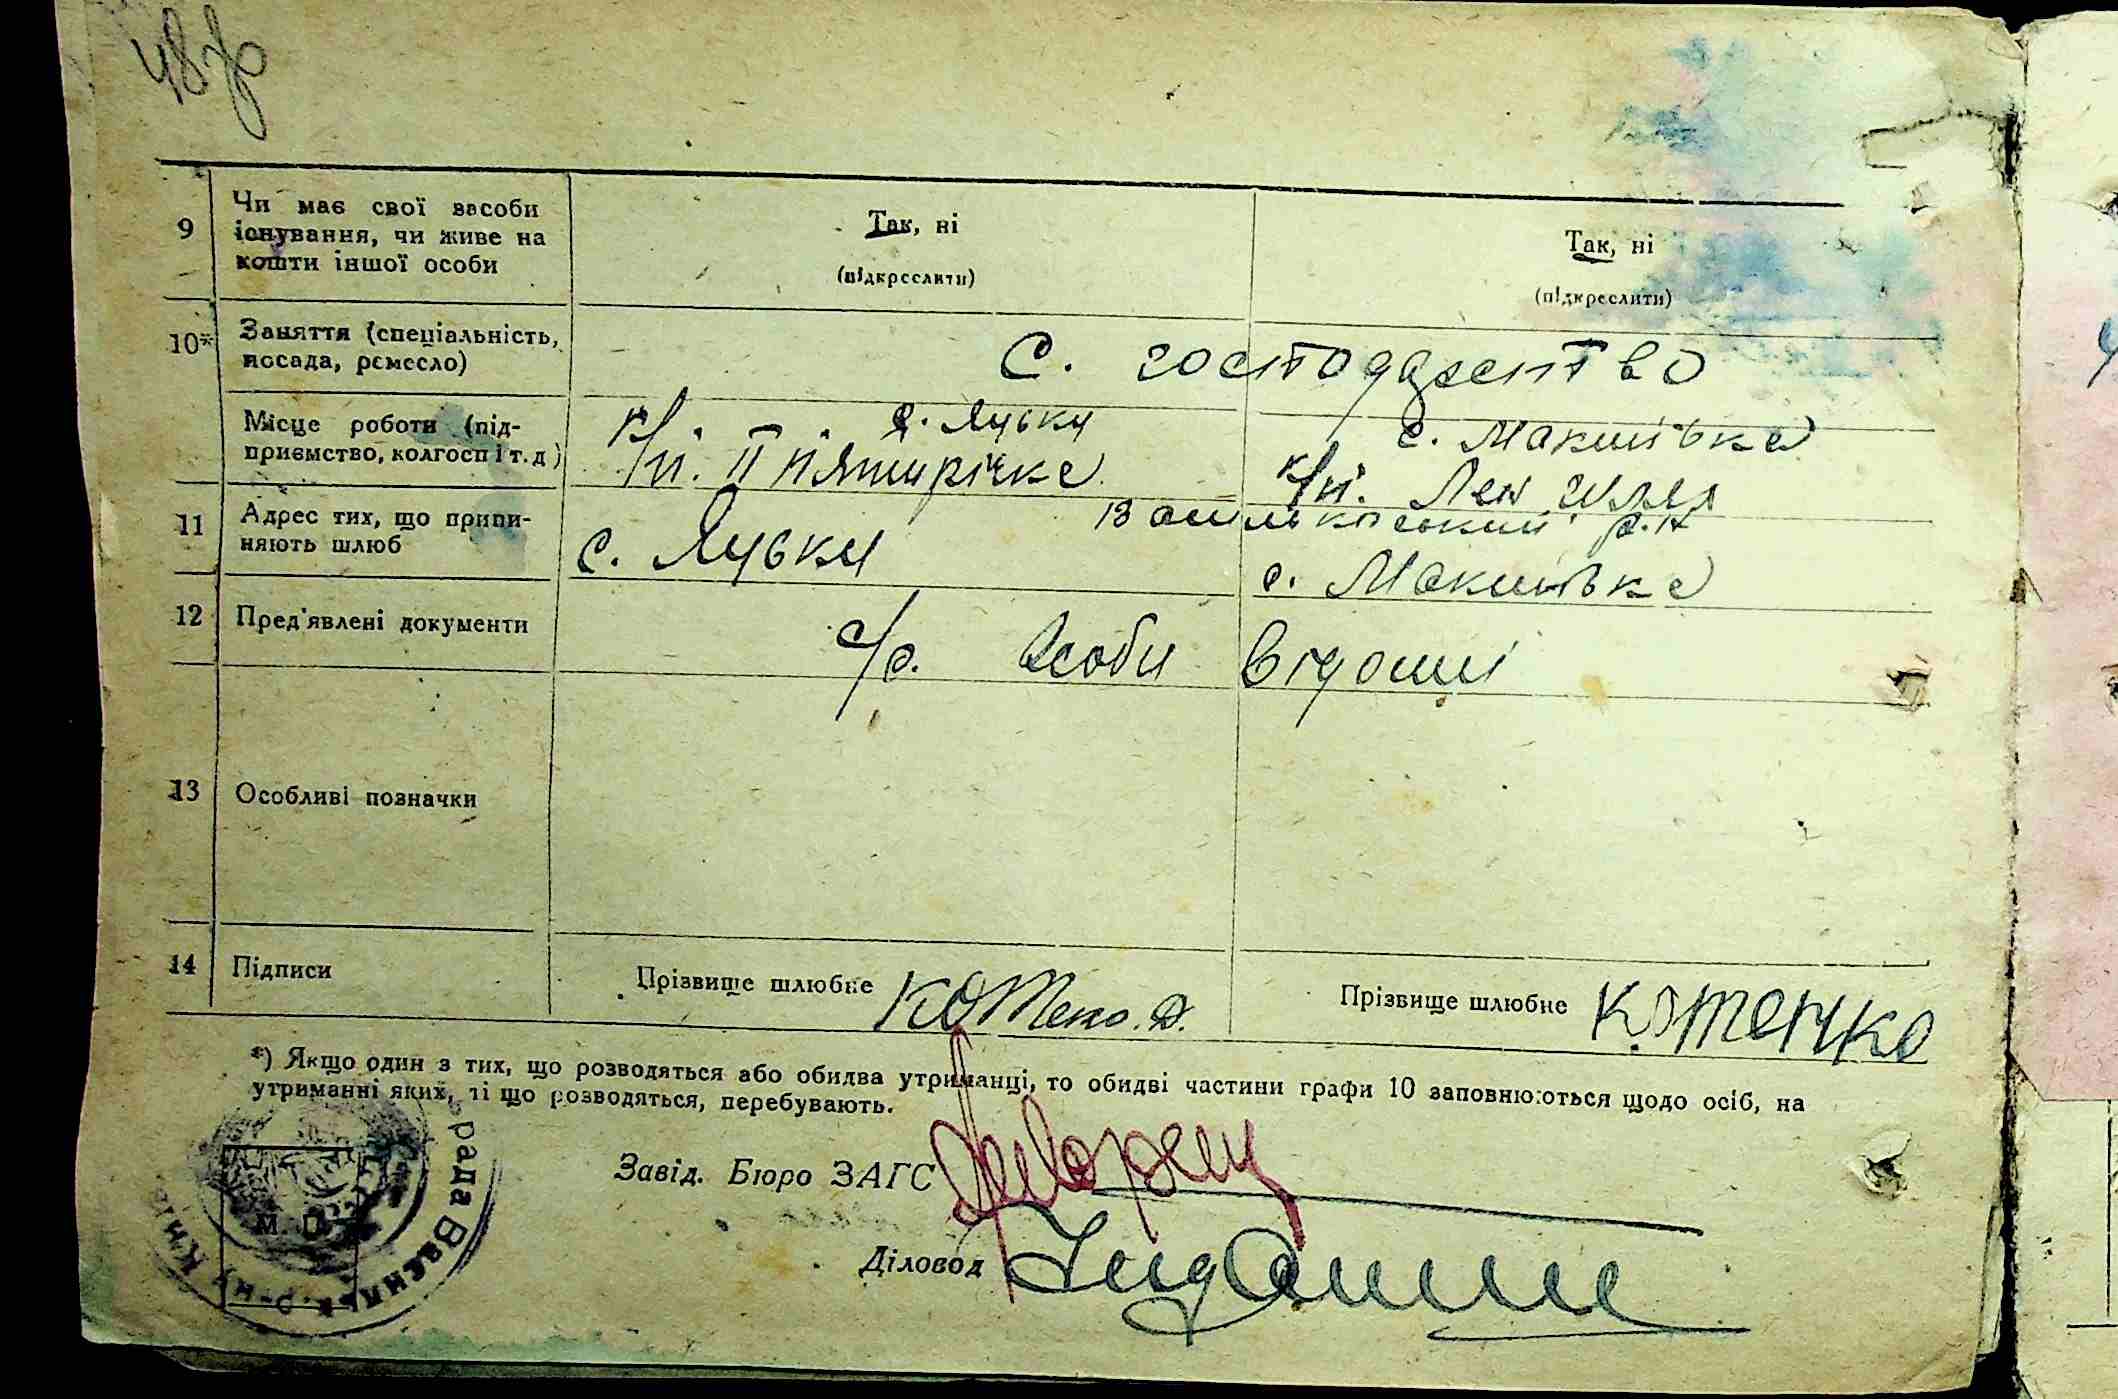 9 Чи має свої засоби
існування, чи живе на
кошти іншої особи
Так, ні
(підкреслити)
Так, ні
(підкреслити)
10* Заняття (спеціальність,
посада, ремесло)
С. господарство
Місце роботи (під-
приємство, колгосп і т. д)
с. Яцьки
к/п. II П'ятирічка
с. Макиївка
к/п. Лен. шлях
11 Адрес тих, що припи-
няють шлюб
с. Яцьки
Васильківський р.н
с. Макиївка
12 Пред'явлені документи
с/р. Особи відомі
13 Особливі позначки
14 Підписи
Прізвище шлюбне
Прізвище шлюбне Котенко
*) Якщо один з тих, що розводяться або обидва утриманці, то обидві частини графи 10 заповнюються щодо осіб, на
утриманні яких, ті що розводяться, перебувають.
рада Васильк. р-ну
М. П.
Завід. Бюро ЗАГС
Діловод